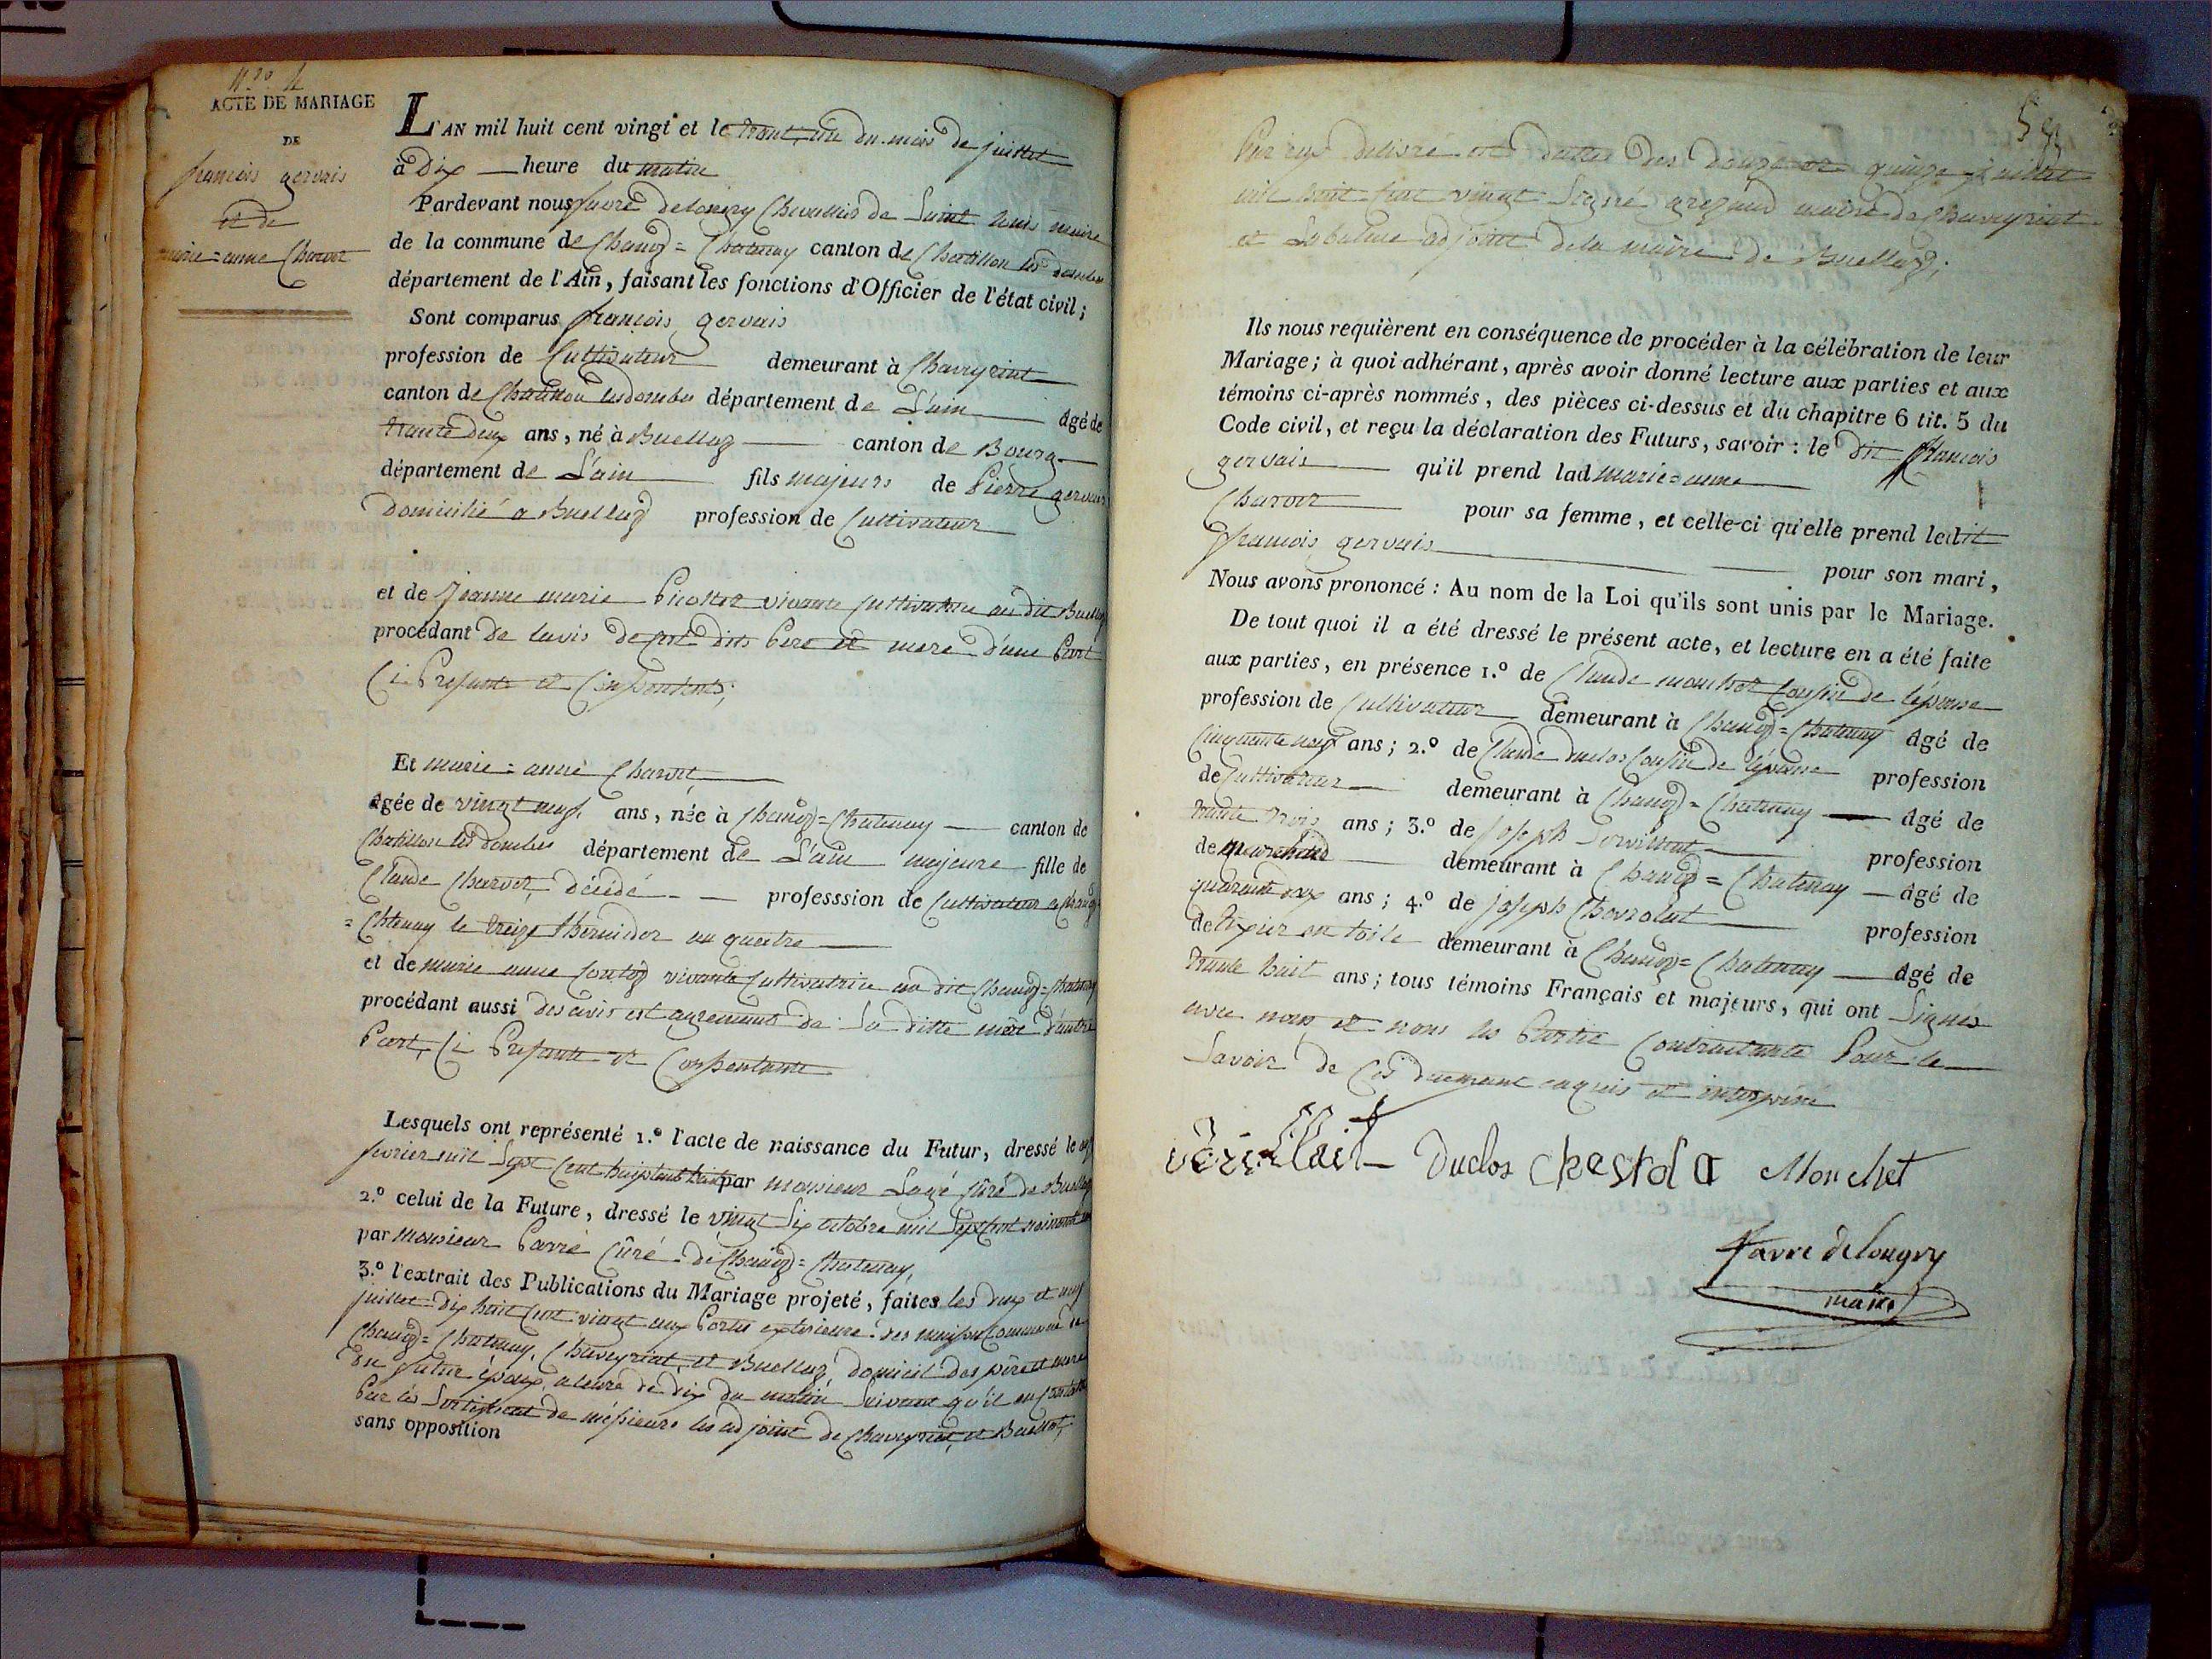 N.ro 4
ACTE DE MARIAGE
DE
francois gervais
et de
marie=anne Charvet
L'AN mil huit cent vingt et le trant, un du mois de juillet
à Dix — heure du matin
Pardevant nous favre delongry Chevallier de Saint louis maire
de la commune de Chanoz=Chatenay canton de Chatillon les dombes
département de l'Ain, faisant les fonctions d'Officier de l'état civil;
Sont comparus francois gervais
profession de Cultivateur demeurant à Chaveyriat
canton de Chatillon lesdombes département de L'ain — âgé de
trante deux ans, né à Buellaz — canton de Bourg
département de L'ain — fils majeurs de Pierre gervais
Domicilié a Buellaz profession de Cultivateur
et de Jeanne marie vivante Cultivatrice au dit Buellaz
procédant de lavis de dits Pere et mere d'une Part
Ci Presants et Consentents;
Et marie=anne Charvet
agée de vingt neuf ans, née à Chanoz=Chatenay — canton de
Chatillon les dombes département de L'ain majeure fille de
Claude Charvet décédé — professsion de Cultivateur a Chanoz
=Chtenay le treize thermidor an quatre
et de marie anne vivante Cultivatrice au dit Chanoz=Chatenay
procédant aussi des avis et agrement de Sa ditte mère d'autre
Part, Ci Presante et Consentante
Lesquels ont représenté 1.º l'acte de naissance du Futur, dressé le
fevrier mil Sept Cent par monsieur curé de Buellaz
2.º celui de la Future, dressé le vingt Six octobre mil Sept Cent
par monsieur Parré Curé de Chanoz=Chatenay,
3.º l'extrait des Publications du Mariage projeté, faites les deux et neuf
juillet dix huit Cent vingt aux Portes exterieure des maison Commune de
Chanoz=Chatenay, Chaveyriat, et Buellaz, domicil des père et mere
du futur époux, a leure de dix du matin Suivant qu'il en
Par les Sertificat de messieurs les adjoint de Chaveyriat, et Buellat,
sans opposition
59
Par eux delivré et dattés des douze et quinze juillet
mil huit cent vingt Signé maire de Chaveyriat
et Labalme adjoint de la mairie de Buellaz;
Ils nous requièrent en conséquence de procéder à la célébration de leur
Mariage; à quoi adhérant, après avoir donné lecture aux parties et aux
témoins ci-après nommés, des pièces ci-dessus et du chapitre 6 tit. 5 du
Code civil, et reçu la déclaration des Futurs, savoir: le dit francois
gervais — qu'il prend lad marie=anne
Charvet — pour sa femme, et celle-ci qu'elle prend ledit
francois gervais — pour son mari,
Nous avons prononcé: Au nom de la Loi qu'ils sont unis par le Mariage.
De tout quoi il a été dressé le présent acte, et lecture en a été faite
aux parties, en présence 1.º de Claude monchet Cousin de l'épouse
profession de Cultivateur demeurant à Chanoz=Chatenay âgé de
Cinquante neuf ans; 2.º de Claude duclos Cousin de l'épouse profession
de Cultivateur — demeurant à Chanoz=Chatenay — âgé de
trante trois ans; 3.º de Joseph — profession
de marechal — demeurant à Chanoz=Chatenay — âgé de
quarante deux ans; 4.º de joseph — profession
de tixier en toile demeurant à Chanoz=Chatenay — âgé de
trante huit ans; tous témoins Français et majeurs, qui ont Signés
avec nous et nons les Partie Contractante Pour le
Savoir de Ces deument enquis et
Duclos Monchet
favre delongry
maire